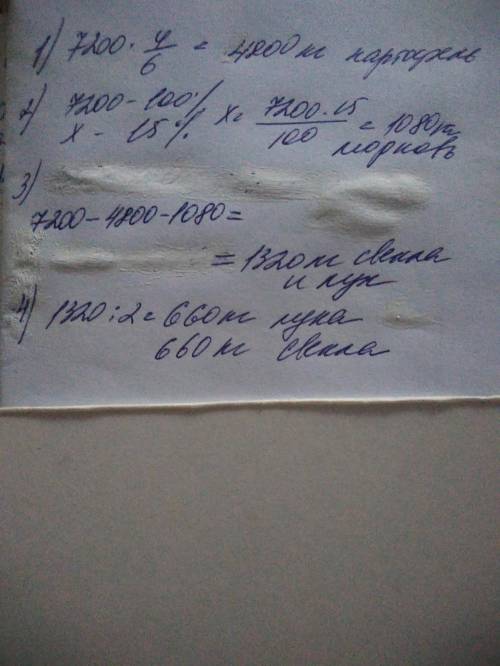 1) 7200 · 4/6 = 4800 кг картофель
2) 7200 - 100%
х - 15% х = 7200·15/100 = 1080 кг
морковь
3)
7200 - 4800 - 1080 =
= 1320 кг свекла
и лук
4) 1320 : 2 = 660 кг лука
660 кг свекла